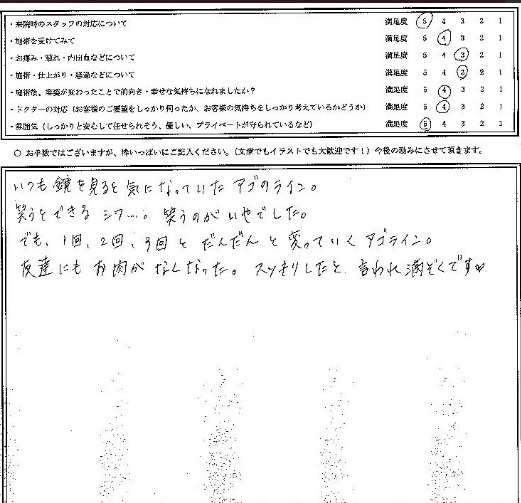 ・来院時のスタッフの対応について 満足度 5 4 3 2 1
・施術を受けてみて 満足度 5 4 3 2 1
・お痛み・腫れ・内出血などについて 満足度 5 4 3 2 1
・施術・仕上がり・感通などについて 満足度 5 4 3 2 1
・施術後、容姿が変わったことで前向き・幸せな気持ちになれましたか? 満足度 5 4 3 2 1
・ドクターの対応(お客様のご要望をしっかり伺ったか、お客様の気持ちをしっかり考えているかどうか) 満足度 5 4 3 2 1
・雰囲気(しっかりと安心して任せられそう、優しい、プライベートが守られているなど) 満足度 5 4 3 2 1
○ お手数ではございますが、枠いっぱいにご記入ください。(文章でもイラストでも大歓迎です!)今後の励みにさせて頂きます。
いつも鏡を見ると気になっていたアゴのライン。
笑うとできるシワ…。笑うのがいやでした。
でも、1回、2回、3回とだんだんと変っていくアゴライン。
友達にもお肉がなくなった。スッキリしたと言われ満ぞくです♡